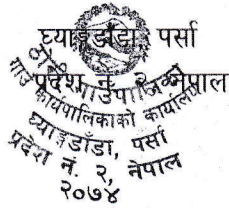 घ्याङडाँडा, पर्सा
प्रदेश नं. २ नेपाल
गाउँ कार्यपालिकाको कार्यालय
घ्याङडाँडा, पर्सा
प्रदेश नं. २, नेपाल
२०७४